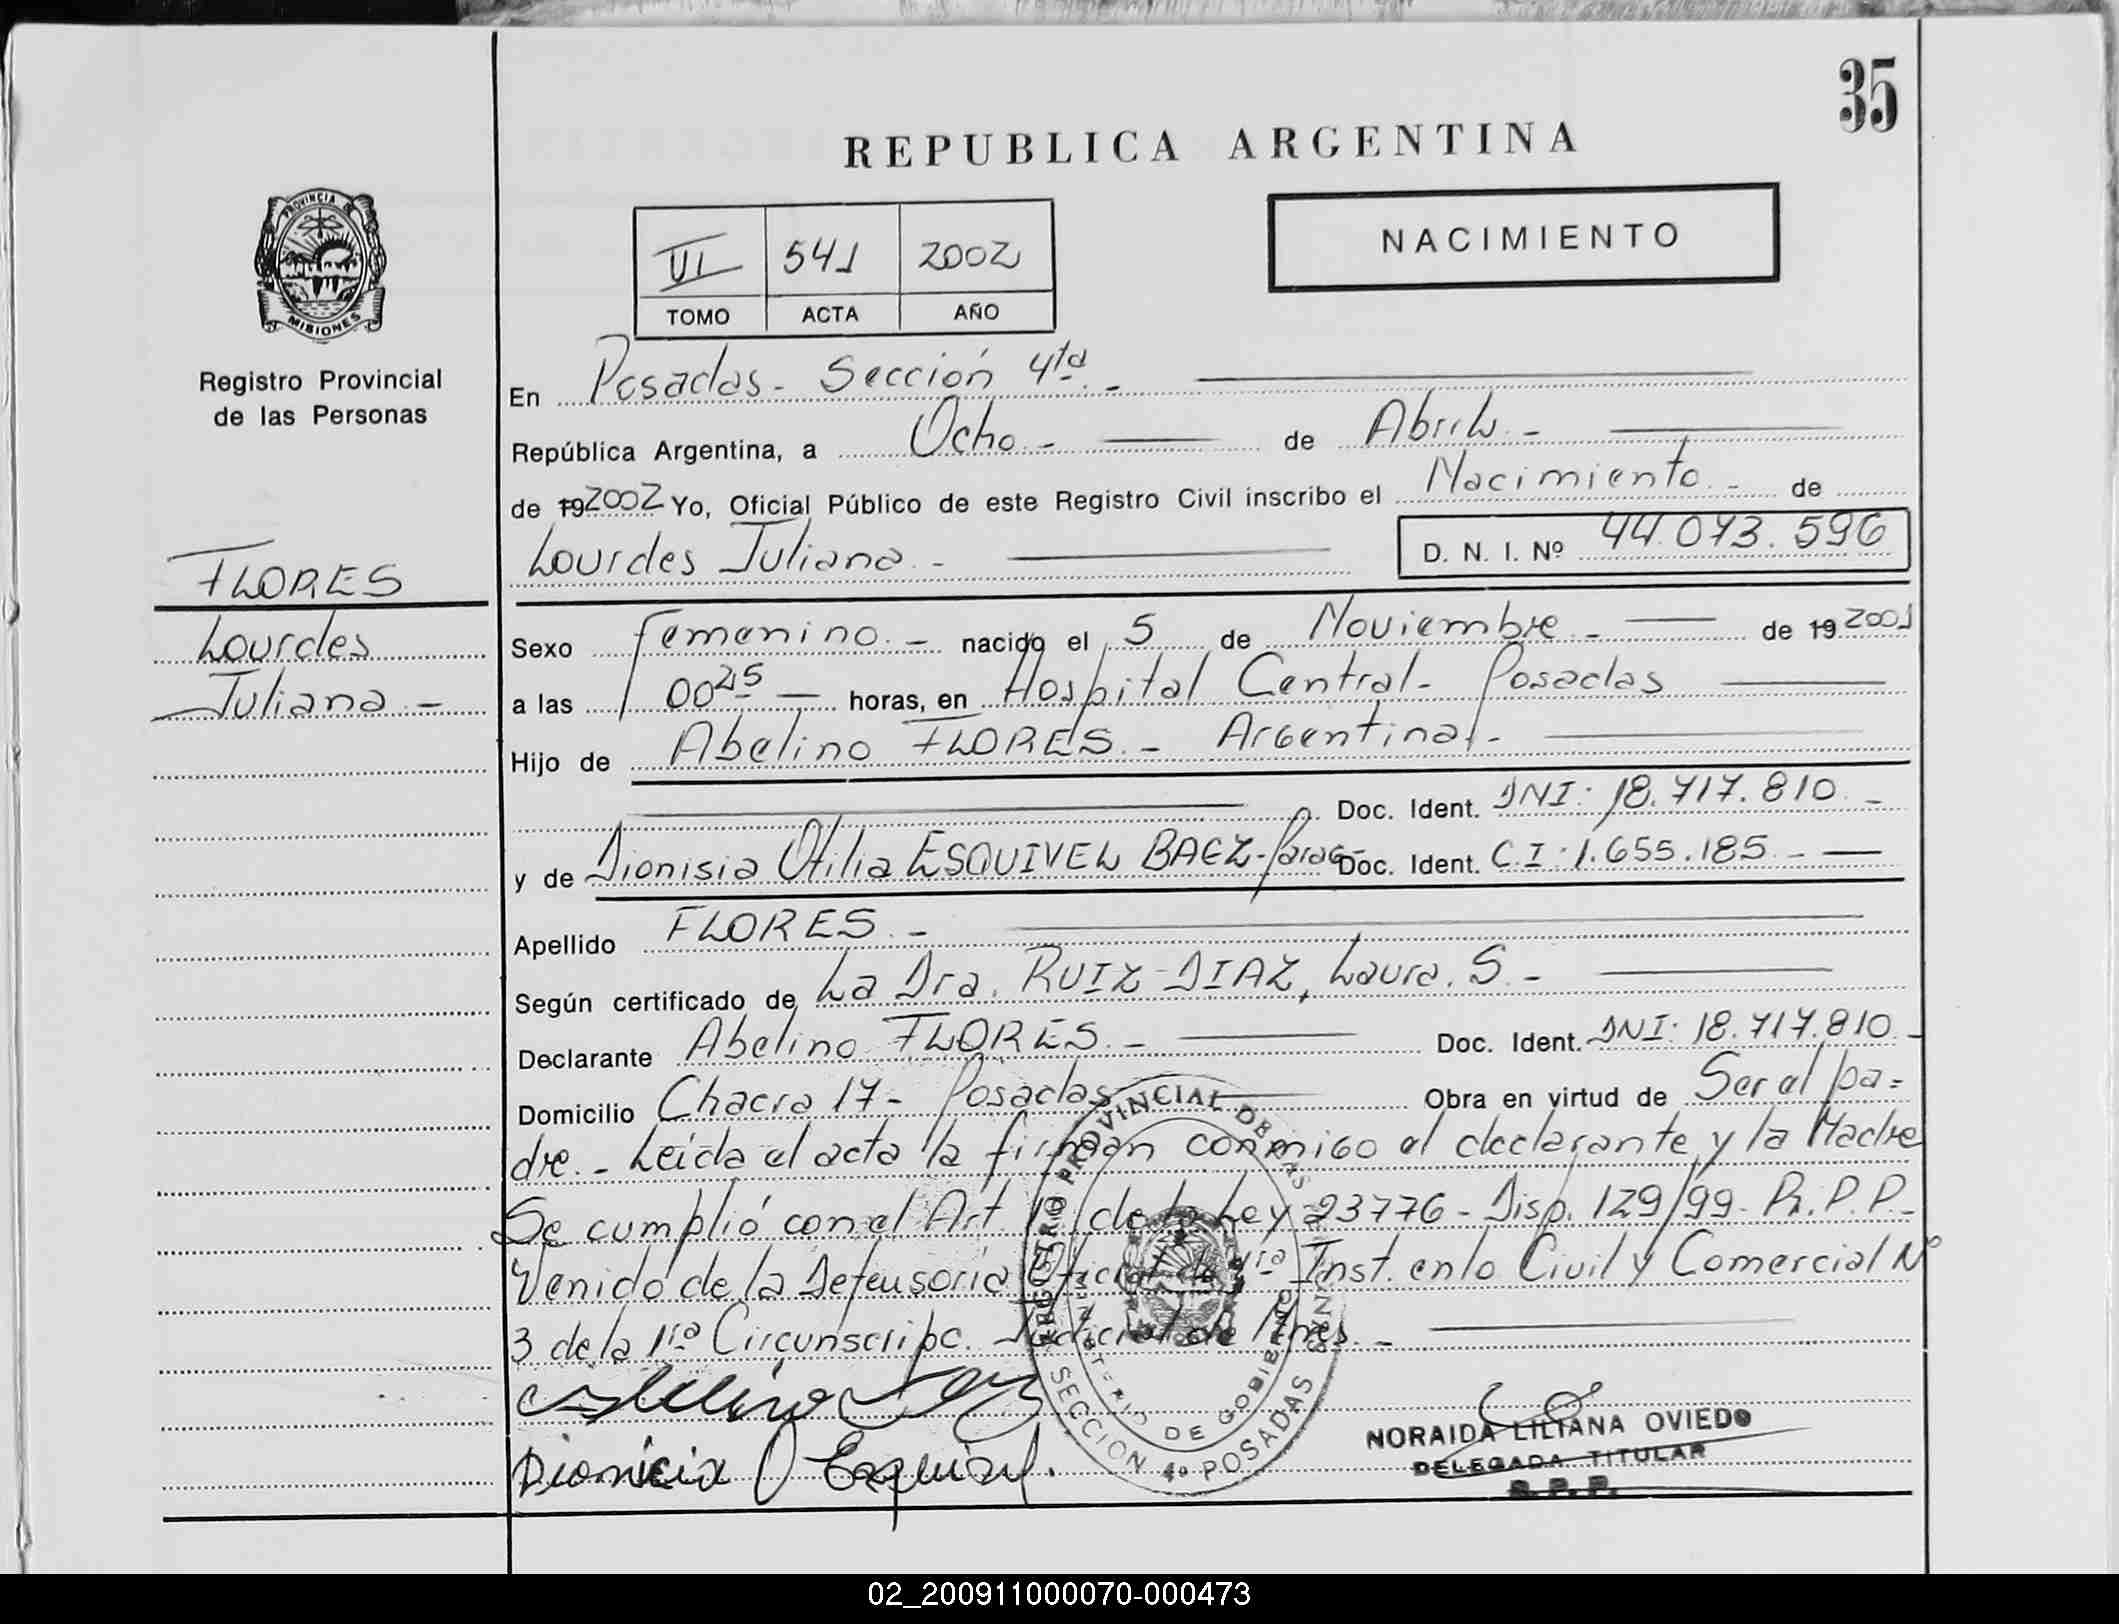 35
REPUBLICA ARGENTINA
PROVINCIA DE
MISIONES
VI 541 2002
TOMO ACTA AÑO
NACIMIENTO
Registro Provincial
de las Personas
En Posadas - Sección 4ta. -
República Argentina, a Ocho. - de Abril. -
de 19 2002 Yo, Oficial Público de este Registro Civil inscribo el Nacimiento. - de
Lourdes Juliana. -
D. N. I. Nº 44.073.596
FLORES
Lourdes
Juliana. -
Sexo femenino. - nacido el 5 de Noviembre. - de 19 2001
a las 00 25 - horas, en Hospital Central - Posadas
Hijo de Abelino FLORES. - Argentina. -
Doc. Ident. DNI: 18.717.810. -
y de Dionisia Otilia ESQUIVEL BAEZ - Parag- Doc. Ident. C.I: 1.655.185. -
Apellido FLORES. -
Según certificado de La Dra. RUIZ-DIAZ, Laura. S. -
Declarante Abelino FLORES. - Doc. Ident. DNI: 18.717.810. -
Domicilio Chacra 17 - Posadas Obra en virtud de Ser el pa=
dre. - Leida el acta la firman conmigo el declarante y la Madre
Se cumplió con el Art. de la Ley 23776 - Disp. 129/99 - R.P.P. -
Venido de la Defensoria Oficial de 1ra Inst. en lo Civil y Comercial Nº
3 de la 1ra Circunscripc. Judicial de Mnes. -
REGISTRO PROVINCIAL DE LAS PERSONAS
MINISTERIO DE GOBIERNO
SECCION 4º POSADAS
Dionicia O Esquivel.
NORAIDA LILIANA OVIEDO
DELEGADA TITULAR
R. P. P.
02_200911000070-000473